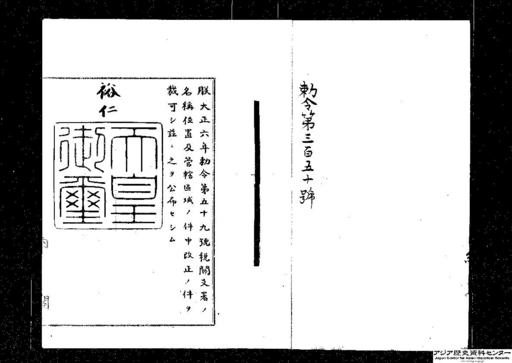 勅令第三百五十號
朕大正六年勅令第五十九號税關支署ノ
名稱位置及管轄區域ノ件中改正ノ件ヲ
裁可シ茲ニ之ヲ公布セシム
裕仁
天皇
御璽
アジア歴史資料センター
Japan Center for Asian Historical Records